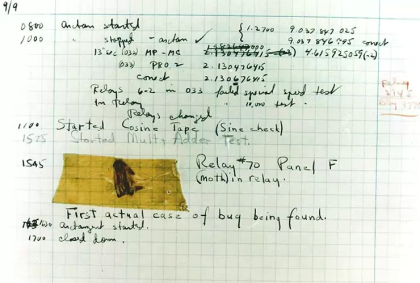 9/9
0800 arctan started { 1.2700 9.037 847 025
1000 " stopped - arctan ✓ 9.037 846 995 correct
13"uc (033) MP-MC 2.130476415 4.615925059(-2)
(033) PRO 2 2.130476415
correct 2.130676415
Relays 6-2 in 033 failed special speed test
in relay " 10,000 test.
Relay
Relays changed
1100 Started Cosine Tape (Sine check)
1525 Started Mult+Adder Test.
1545 Relay #70 Panel F
(moth) in relay.
First actual case of bug being found.
arctangent started.
1700 closed down.